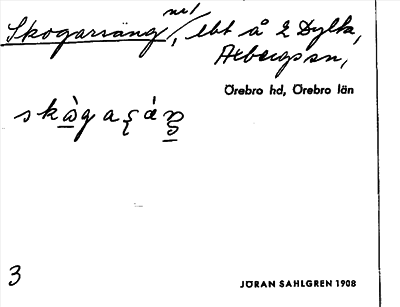 Skogarräng nr 1, lbt å 2 Dylta,
Axbergs sn,
Örebro hd, Örebro län
3
JÖRAN SAHLGREN 1908